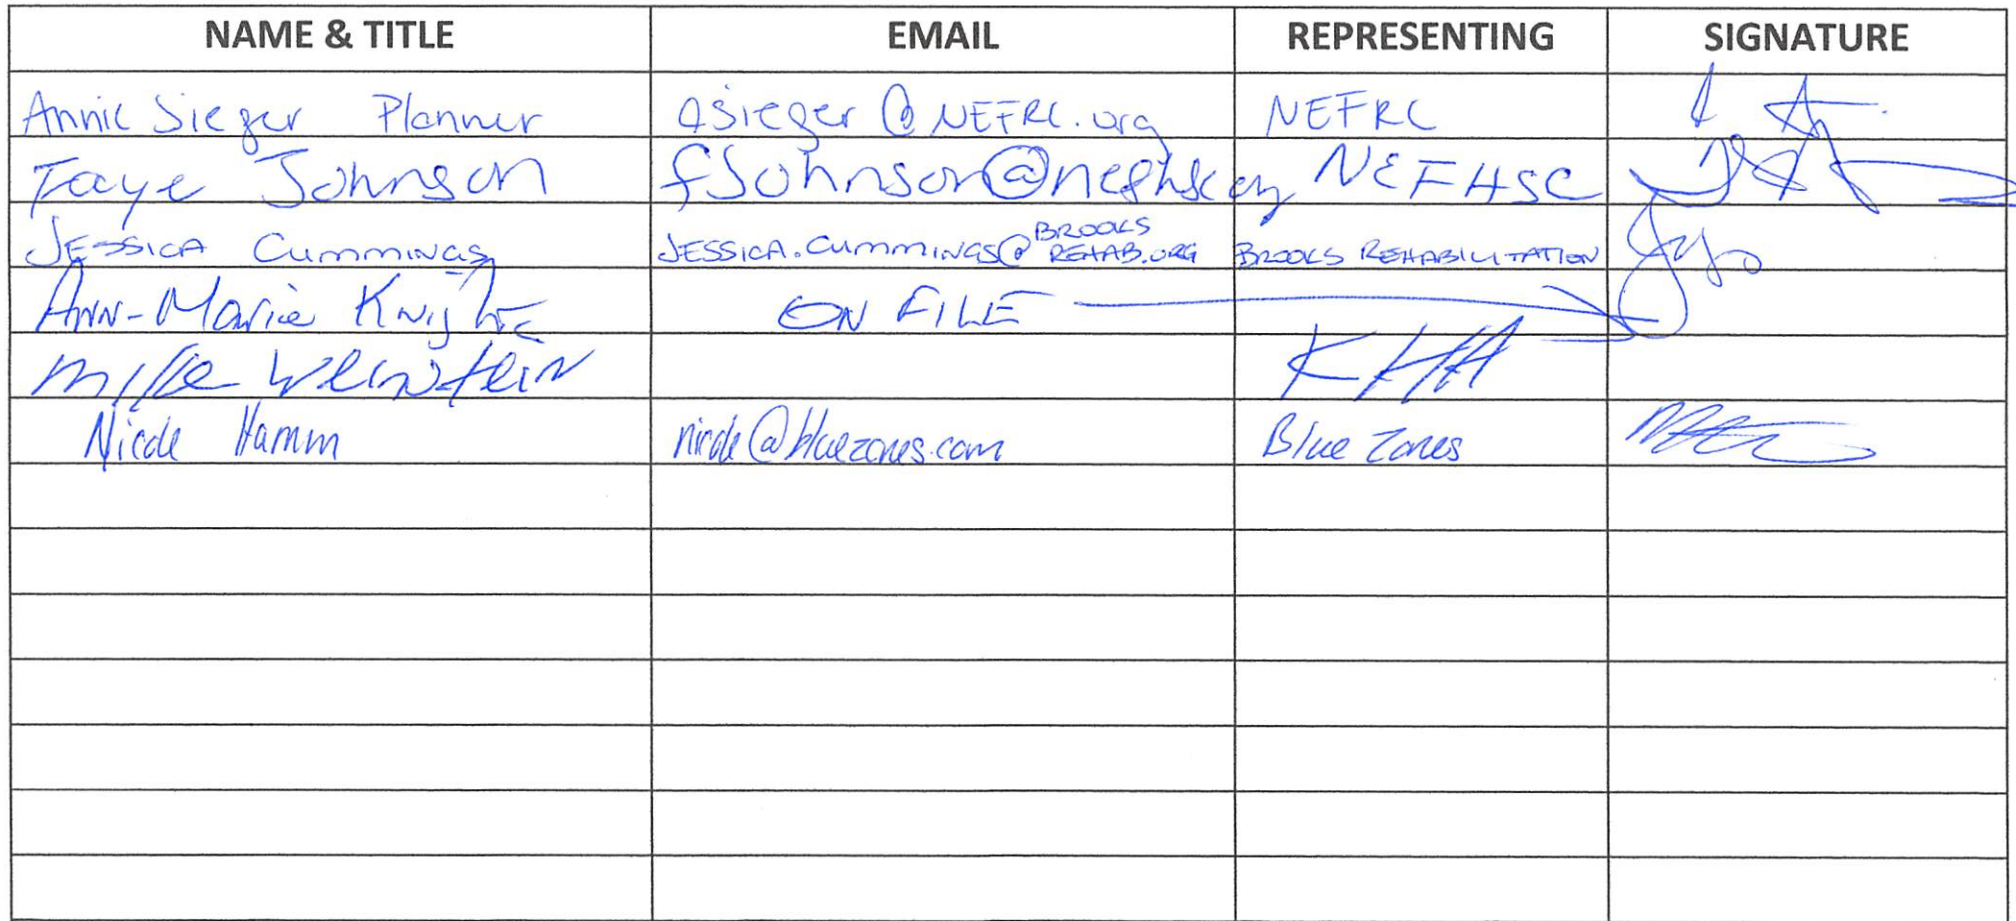 NAME & TITLE EMAIL REPRESENTING SIGNATURE
Annie Sieger Planner asieger@NEFRC.org NEFRC
Faye Johnson fJohnson@nefhsc.org NEFHSC
JESSICA CUMMINGS JESSICA.CUMMINGS@BROOKSREHAB.ORG BROOKS REHABILITATION
ANN-Marie Knight ON FILE
Mike Weinstein KHA
Nicole Hamm nicole@bluezones.com Blue Zones